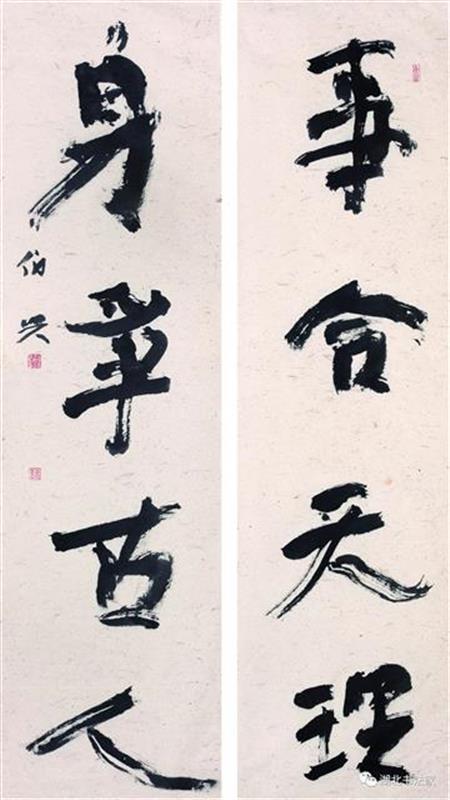 事合天理
身爭古人
伯兴
湖北书法家